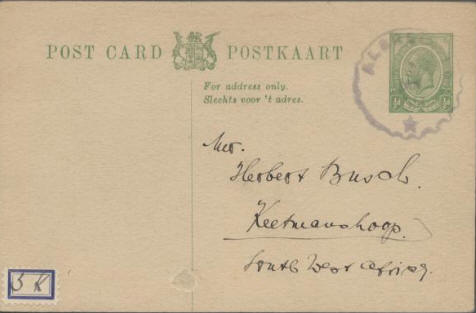 POST CARD POSTKAART
For address only.
Slechts voor 't adres.
½d ½d
Mr.
Herbert Busch.
Keetmanshoop.
South West Africa.
5 K